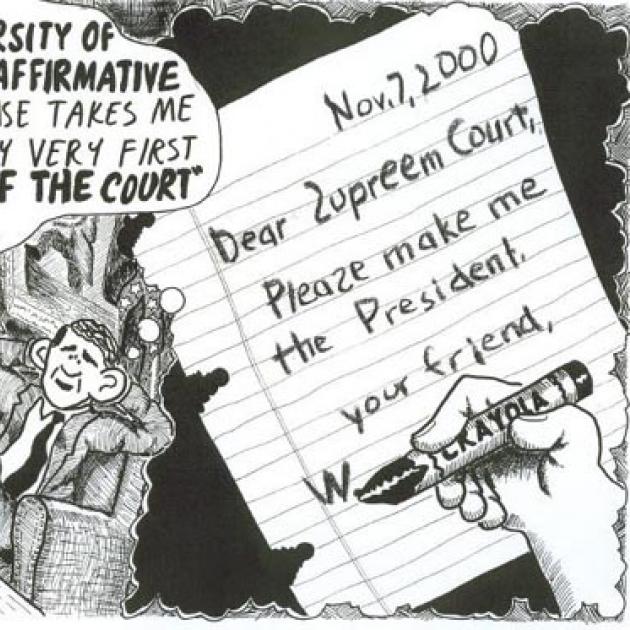 RSITY OF
AFFIRMATIVE
SE TAKES ME
Y VERY FIRST
F THE COURT"
Nov. 7, 2000
Dear Zupreem Court,
Pleaze make me
the President.
your friend,
W
CRAYOLA